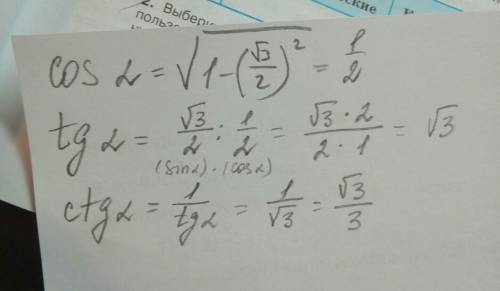 2. Выбери
пользо
cos α = √(1-(√3/2)²) = 1/2
tg α = √3/2 : 1/2 = (√3 · 2)/(2 · 1) = √3
(sin α) · (cos α)
ctg α = 1/tg α = 1/√3 = √3/3